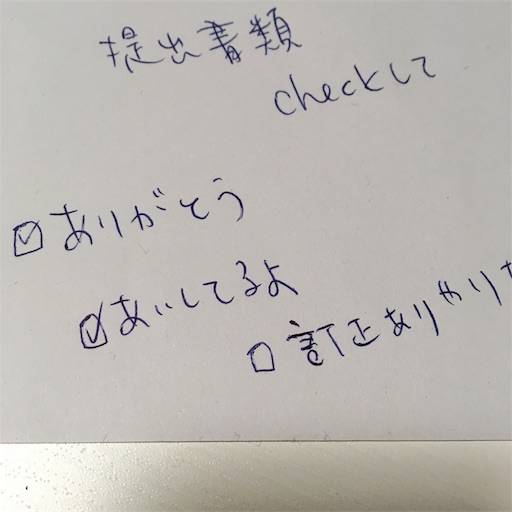 提出書類
checkして
☑ありがとう
☑あいしてるよ
☐訂正ありやり